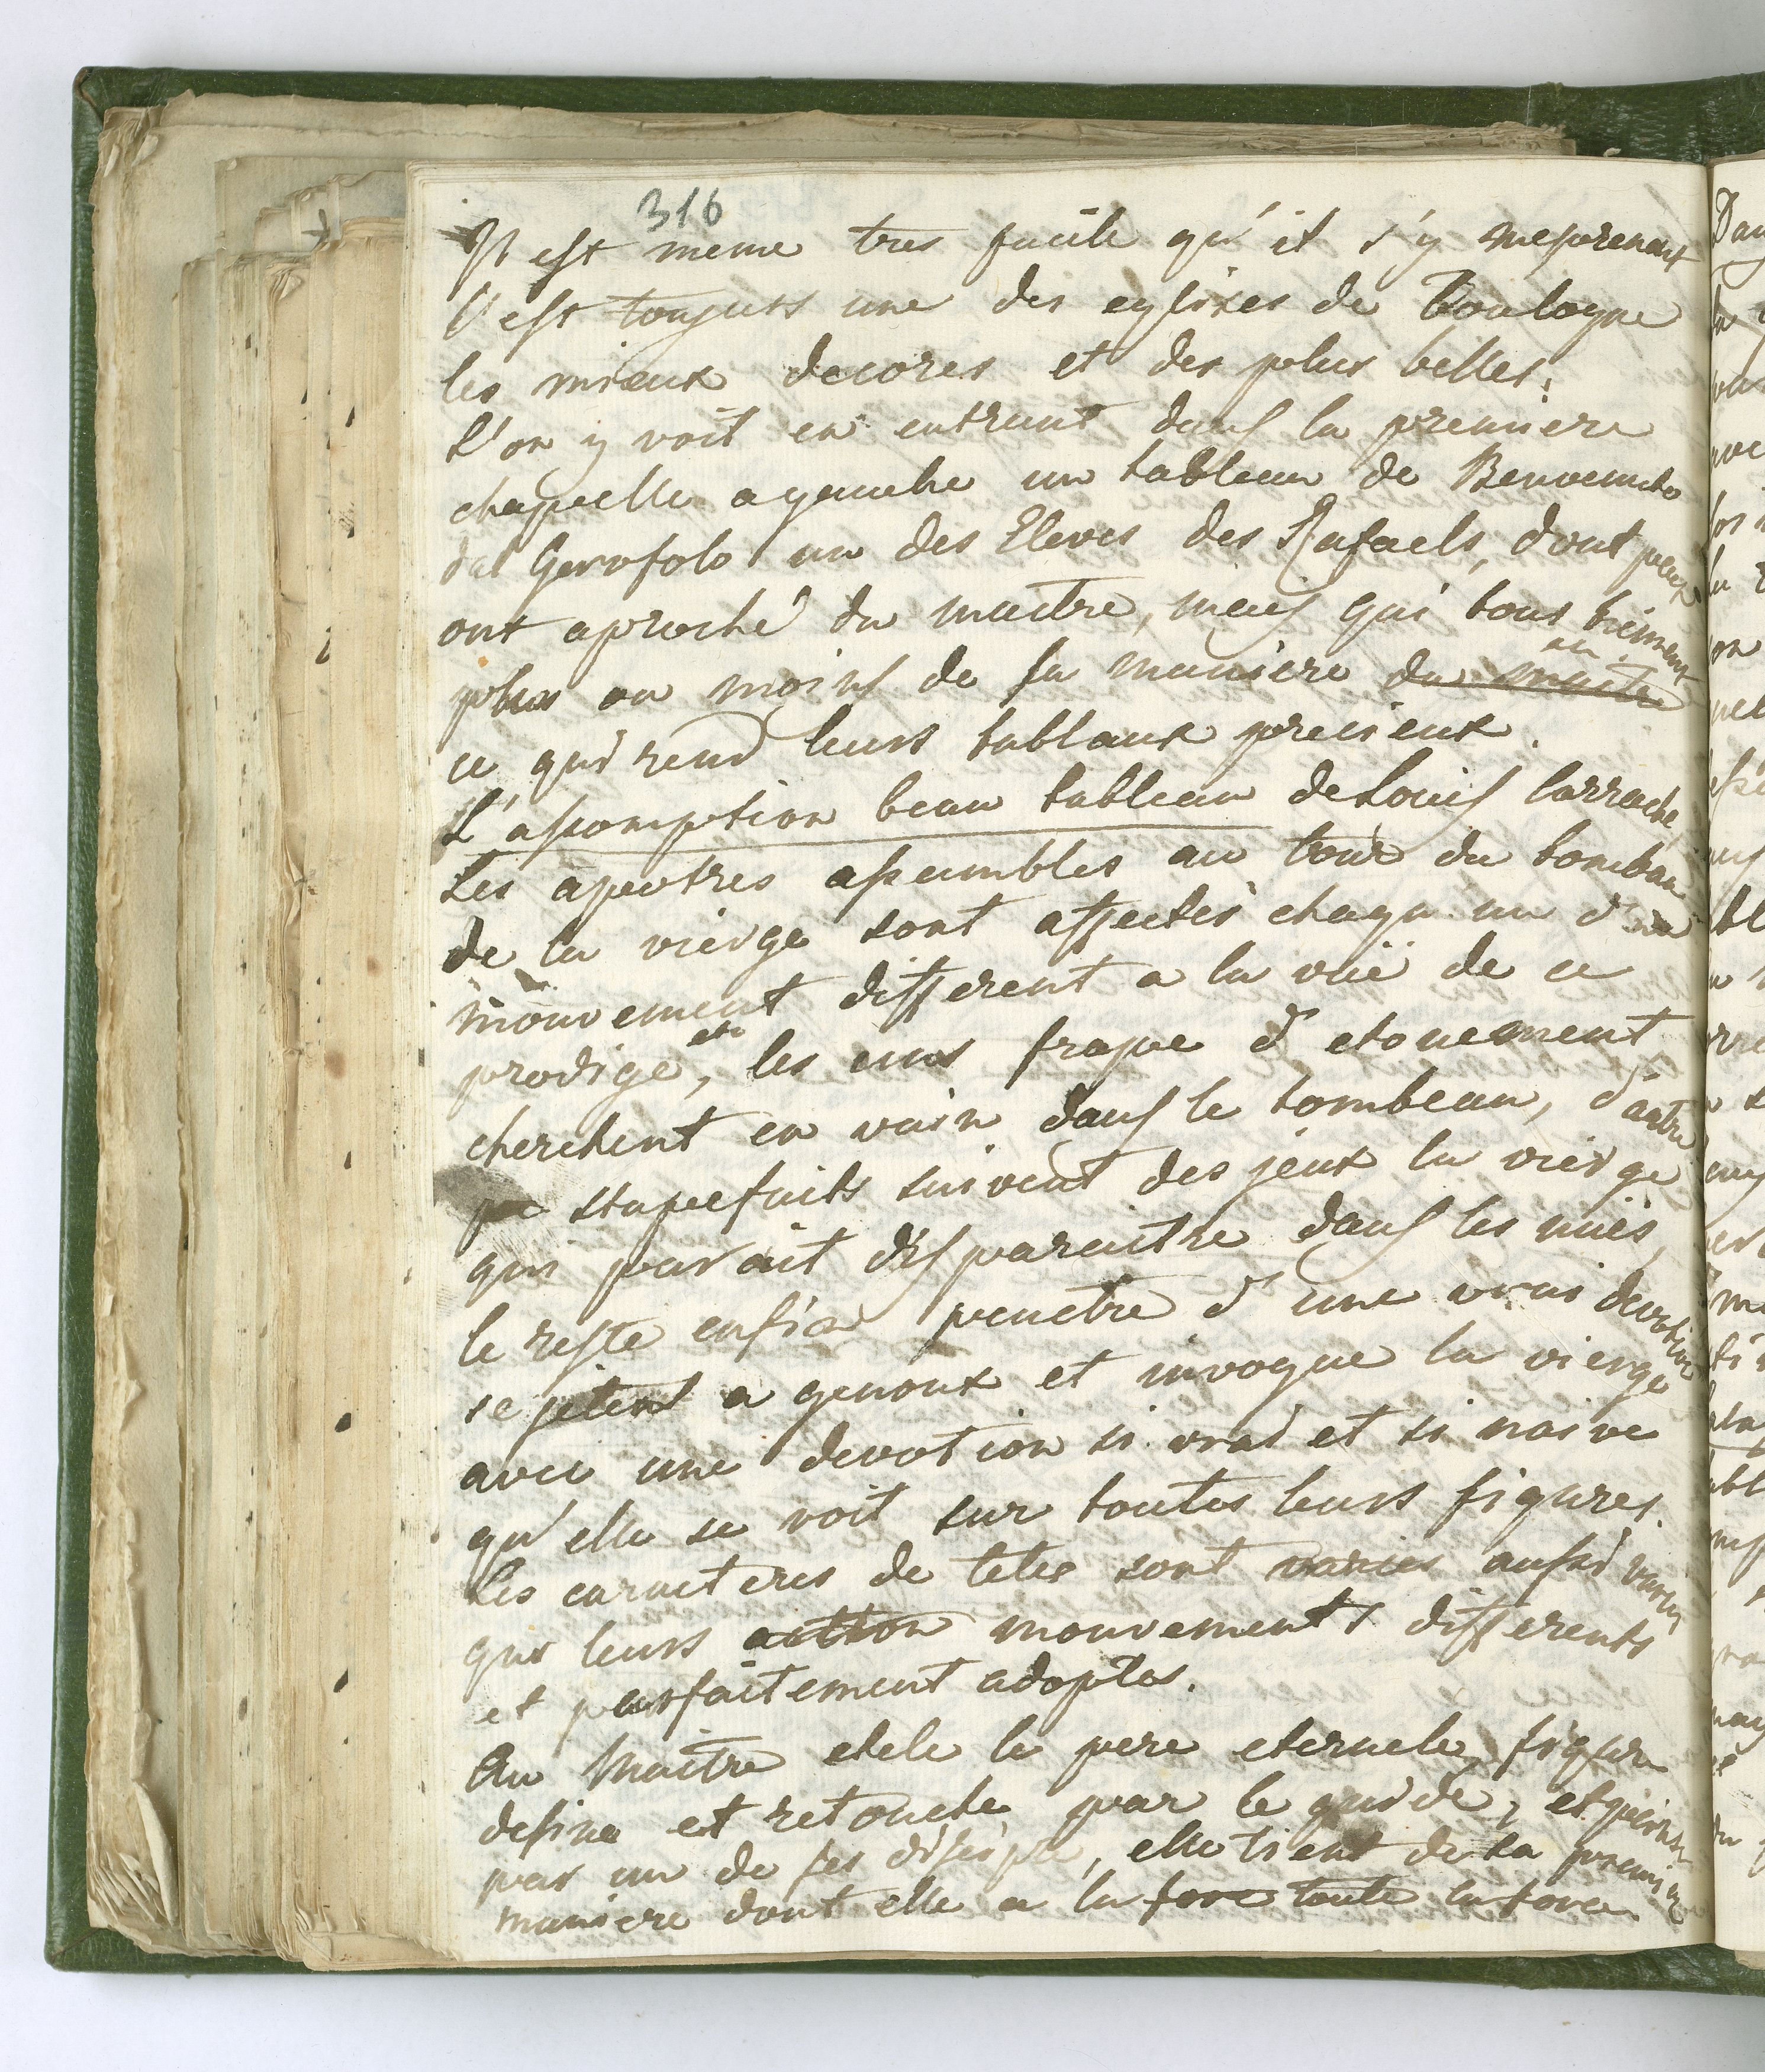 316
Il est meme tres facile qu'il s'y meprenent
C'est toujurs une des eglises de Boulogne
les mieux decores et des plus belles;
L'on y voit en entrant dans la premiere
chapelle a gauche un tableau de Benvenuto
dal Garofolo un des Eleves des Rafaels, dont peux
ont aproché du maitre, mais qui tous tiennent
plus ou moins de sa maniere du maitre
ce qui rend leurs tablaux precieux.
L'assomption beau tableau de Louis Carrache
Les apotres assembles au tour du tombau
de la vierge sont affectés chaqu un d'un
mouvement different a la vuë de ce
prodige, les uns frape d'etonement
cherchent en vain dans le tombeau, d'autre
stupefaits suivent des jeux la vierge
qui parait disparaitre dans les nuës,
le reste enfin penetre d'une vrai devotion
se jetent a genoux et invoque la vierge
avec une devotion si vrai et si naive
qu'elle se voit sur toutes leurs figures.
Les caracteres de tetes sont varies aussi varies
que leurs action mouvements differents
et parfaitement adoptes.
Au Maitre etele le pere eternele, figure
desine et retouche par le guide,
par un de ses disciple, elle tient de sa premiere
maniere dont elle a la force toute la force